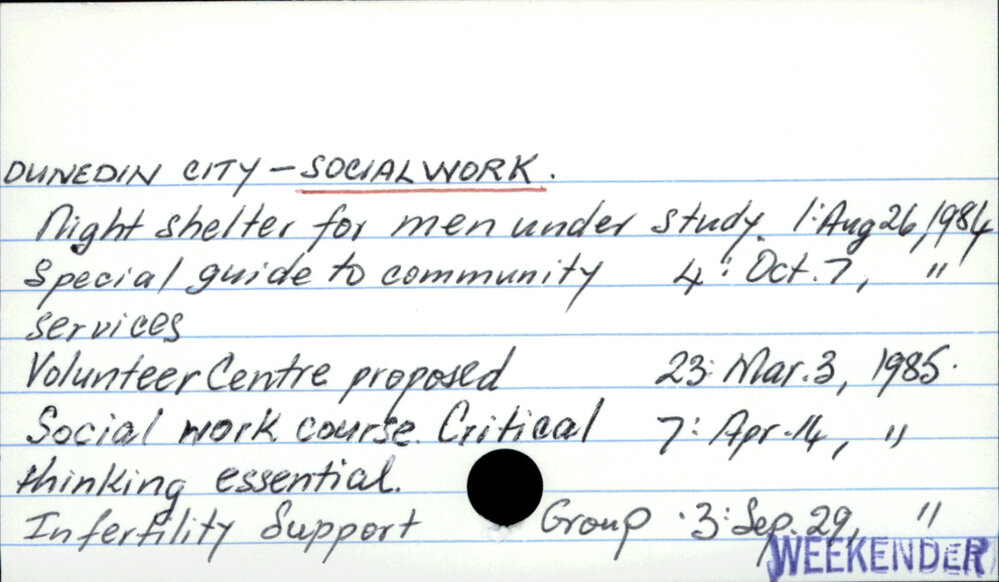 DUNEDIN CITY - SOCIAL WORK.
Night shelter for men under study. 1: Aug 26, 1984
Special guide to community 4: Oct. 7, "
services
Volunteer Centre proposed 23: Mar. 3, 1985.
Social work course. Critical 7: Apr. 14, "
thinking essential.
Infertility Support Group . 3: Sep. 29, "
WEEKENDER